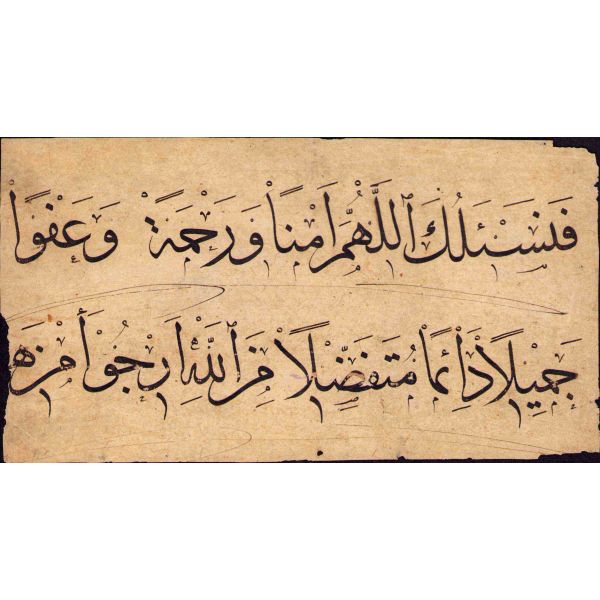 فَنَسْئَلُكَ ٱللَّهُمَّ اَمْنًا وَرَحْمَةً وَعَفْوًا
جَمِيلًا دَائِمًا مُتَفَضِّلًا مِنَ ٱللّٰهِ اَرْجُو